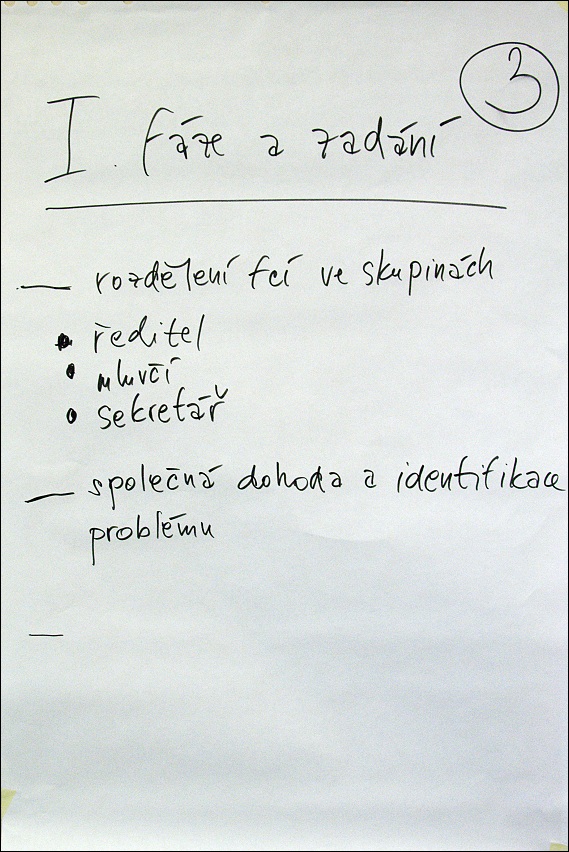 3
I. fáze a zadání
— rozdělení fcí ve skupinách
• ředitel
• mluvčí
• sekretář
— společná dohoda a identifikace
problému
—